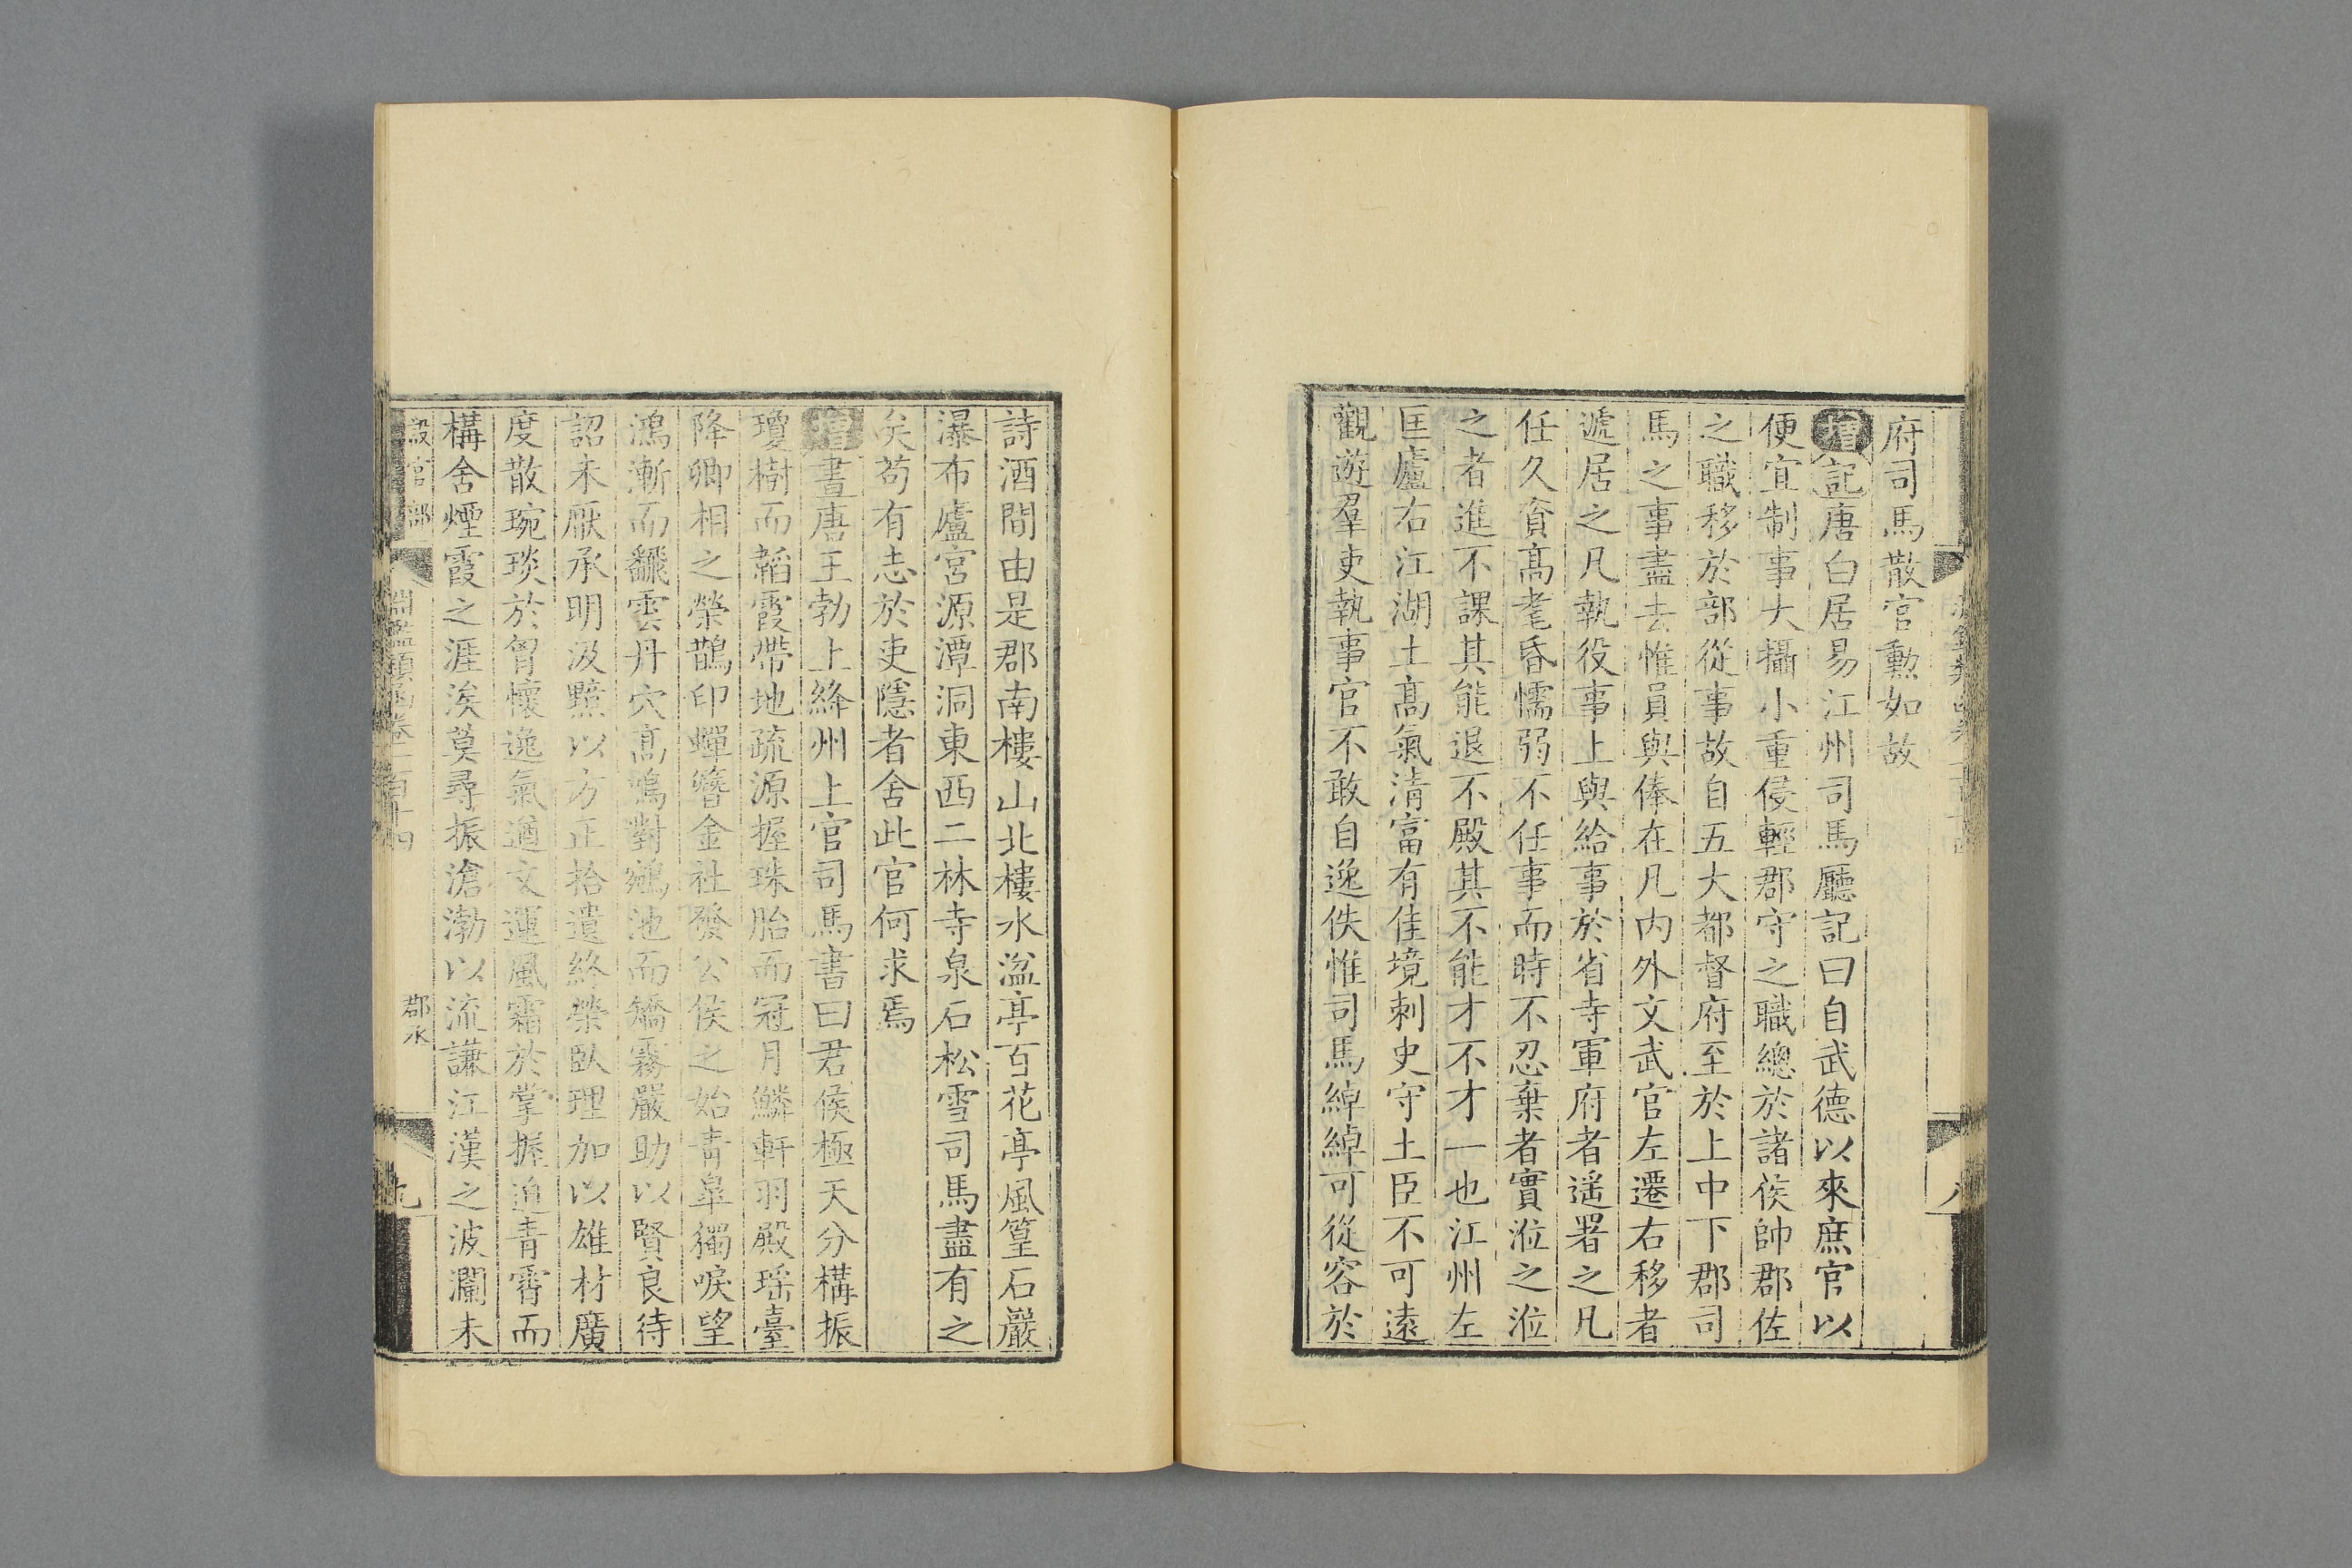 府司馬散官勲如故
增記唐白居易江州司馬廳記曰自武德以來庶官以
便宜制事大攝小重侵輕郡守之職總於諸侯帥郡佐
之職移於部從事故自五大都督府至於上中下郡司
馬之事盡去惟員與俸在凡内外文武官左遷右移者
遞居之凡執役事上與給事於省寺軍府者遥署之凡
任久資髙耄昏懦弱不任事而時不忍棄者實涖之涖
之者進不課其能退不殿其不能才不才一也江州左
匡廬右江湖土髙氣清富有佳境刺史守土臣不可遠
觀遊羣吏執事官不敢自逸佚惟司馬綽綽可從容於
詩酒間由是郡南樓山北樓水湓亭百花亭風篁石巖
瀑布廬宮源潭洞東西二林寺泉石松雪司馬盡有之
矣苟有志於吏隱者舍此官何求焉
增書唐王勃上絳州上官司馬書曰君侯極天分構振
瓊樹而韜霞帶地疏源握珠胎而冠月鱗軒羽殿瑶臺
降卿相之榮鵲印蟬簪金社發公侯之始青皐獨唳望
鴻漸而飜雲丹穴髙鳴對鵷池而矯霧嚴助以賢良待
詔未厭承明汲黯以方正拾遺終榮臥理加以雄材廣
度散琬琰於胷懷逸氣遒文運風霜於掌握追青霄而
構舍煙霞之涯涘莫尋振滄渤以流謙江漢之波瀾未
設官部
淵鑑類函卷一百十四
郡丞
九